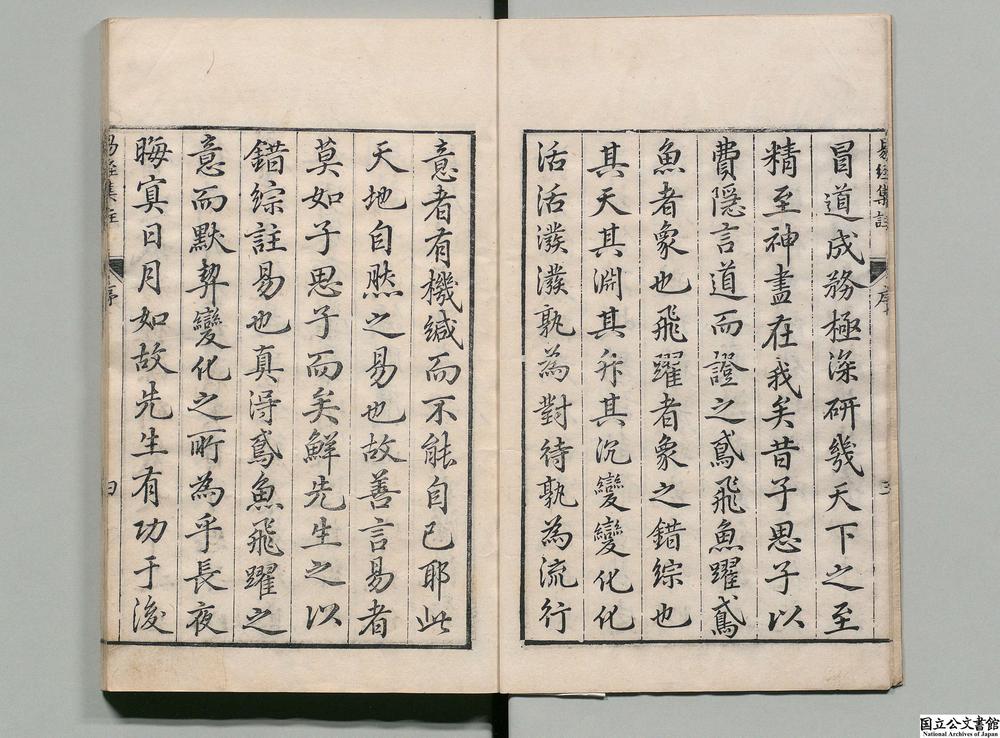 易經集註 序 三
冒道成務極深研幾天下之至
精至神盡在我矣昔子思子以
費隱言道而證之鳶飛魚躍鳶
魚者象也飛躍者象之錯綜也
其天其淵其升其沉變變化化
活活潑潑孰為對待孰為流行
意者有機緘而不能自已耶此
天地自然之易也故善言易者
莫如子思子而矣鮮先生之以
錯綜註易也真得鳶魚飛躍之
意而默契變化之所為乎長夜
晦冥日月如故先生有功于後
易經集註 序 四
国立公文書館
National Archives of Japan